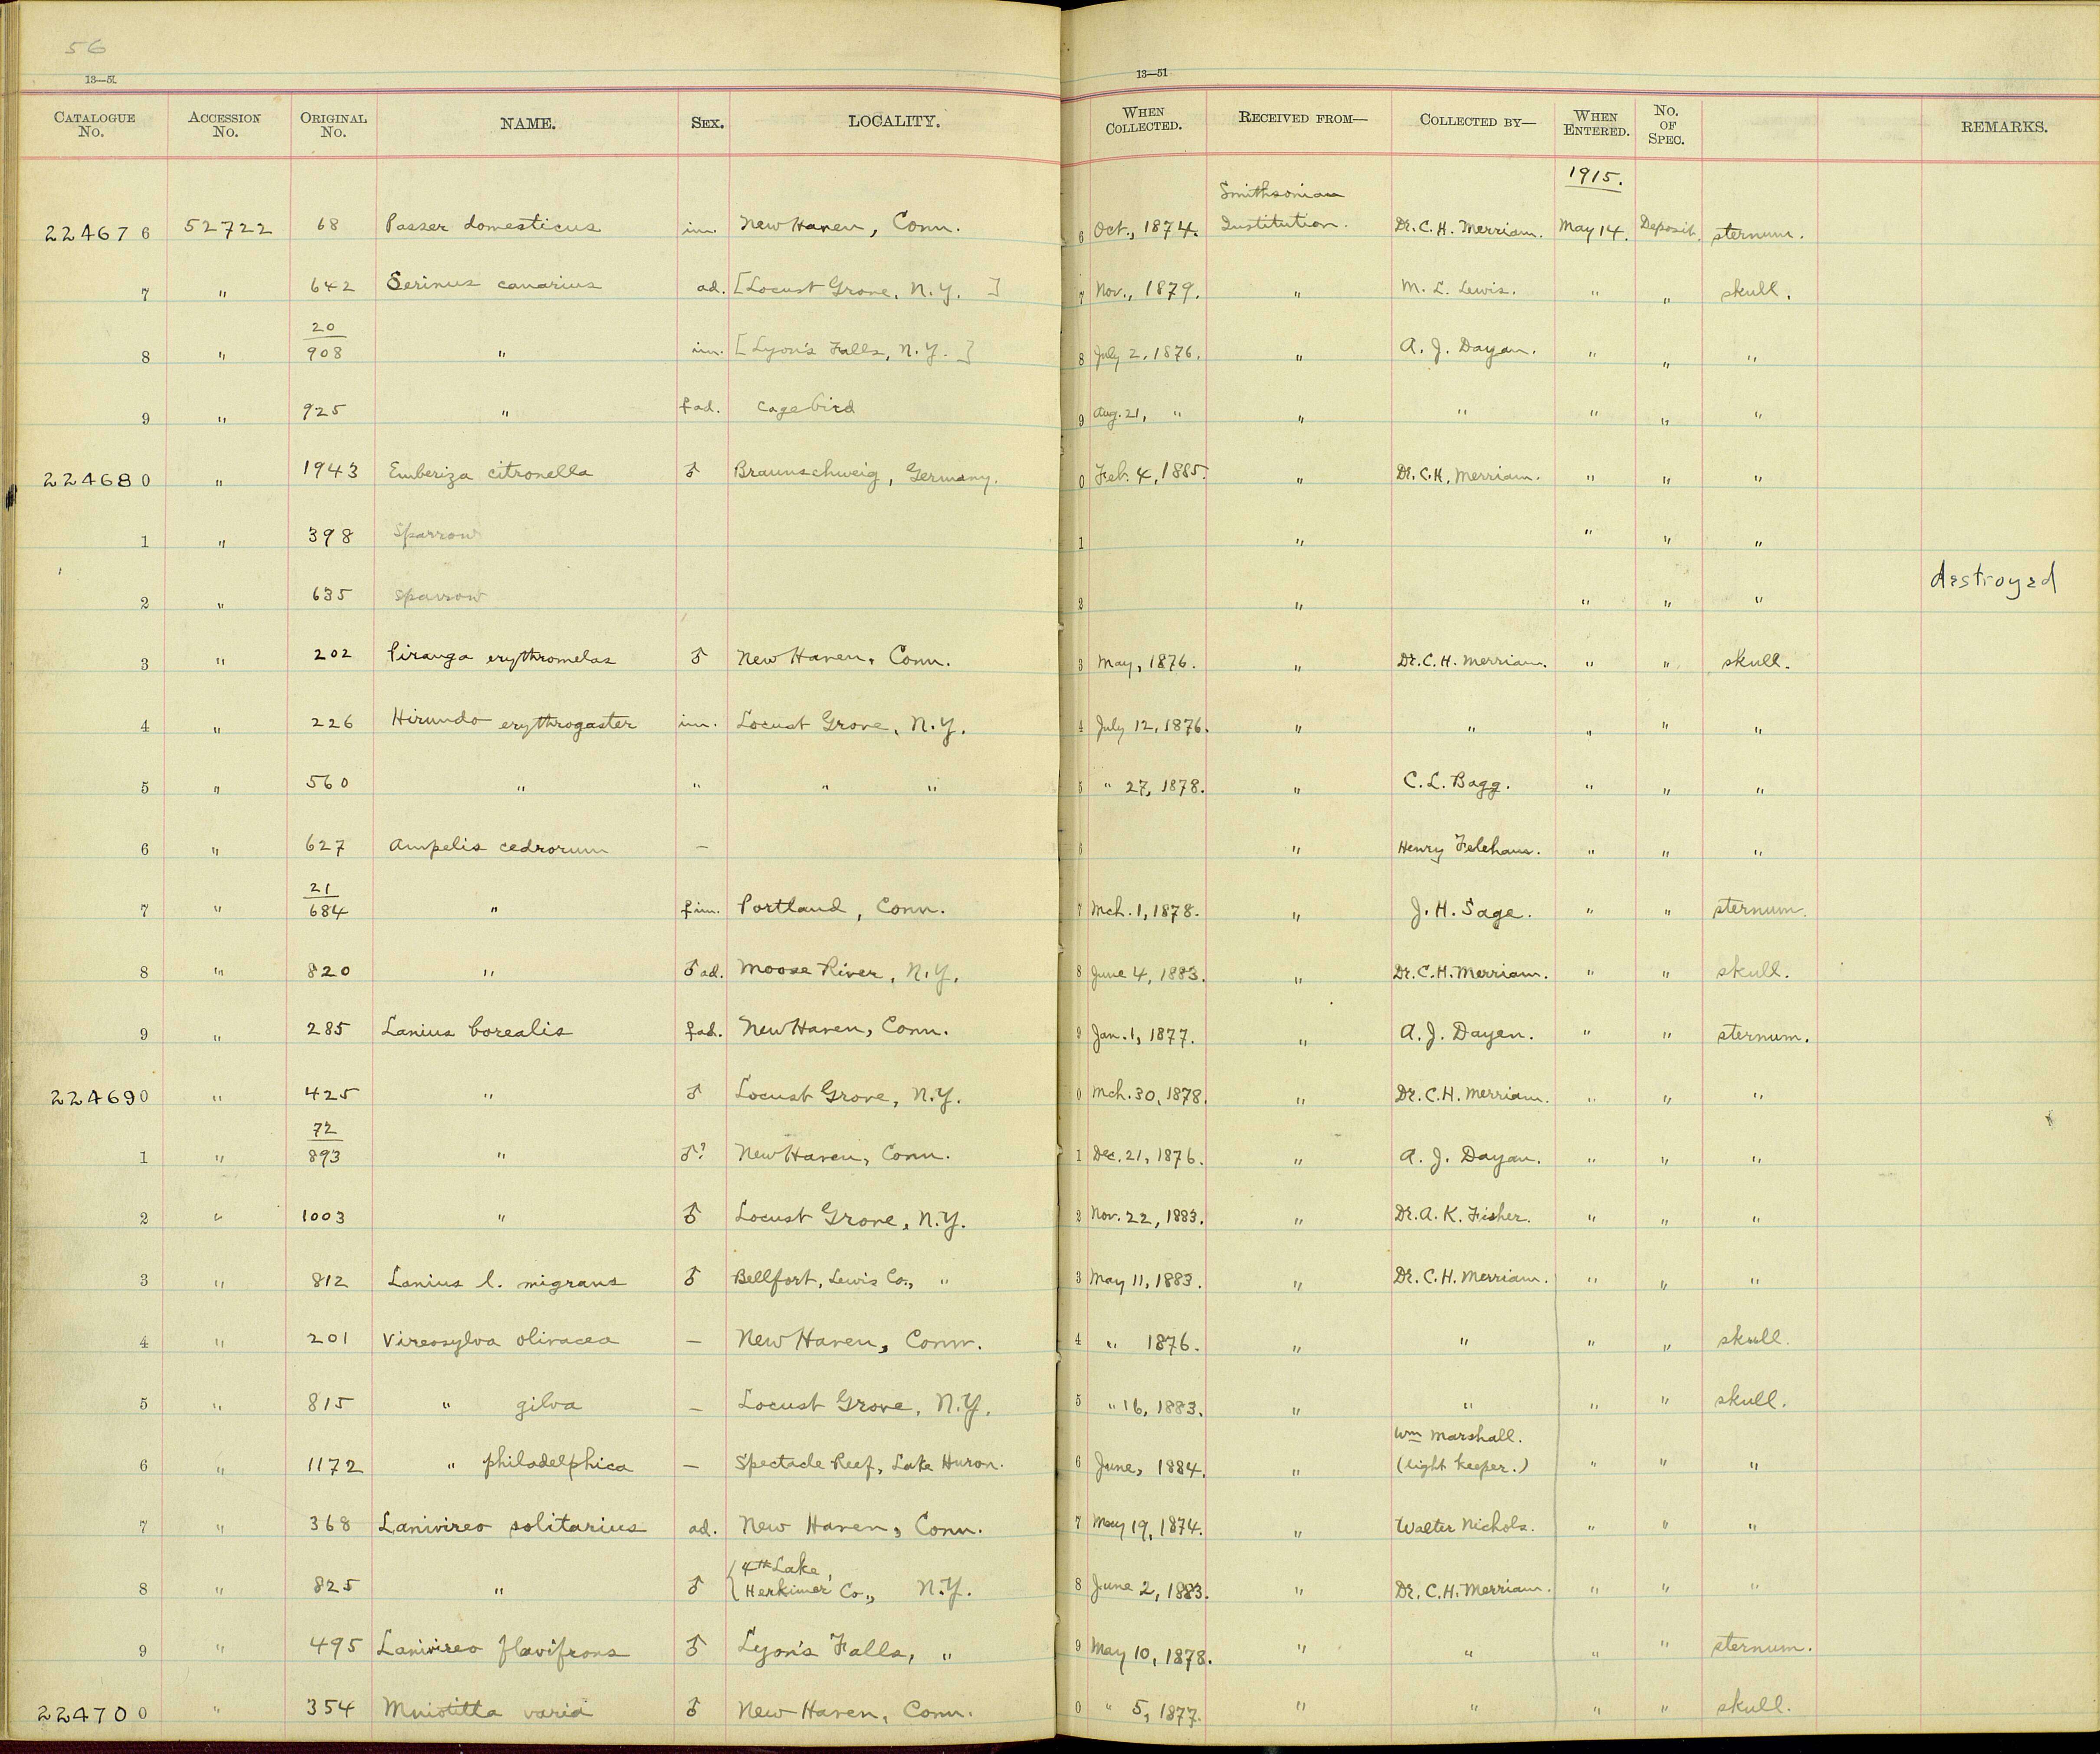 56
13—51
13—51
CATALOGUE No. ACCESSION No. ORIGINAL No. NAME. SEX. LOCALITY. WHEN COLLECTED. RECEIVED FROM— COLLECTED BY— WHEN ENTERED. No. OF SPEC. REMARKS.
1915.
224676 52722 68 Passer domesticus im. New Haven, Conn. 6 Oct., 1874. Smithsonian Institution. Dr. C. H. Merriam. May 14. Deposit. sternum.
7 " 642 Serinus canarius ad. [Locust Grove, N.Y. ] 7 Nov., 1879. " M. L. Lewis. " " skull.
8 " 20/908 " im. [Lyon's Falls, N.Y. ] 8 July 2, 1876. " A. J. Dayan. " " "
9 " 925 " ♀ ad. cage bird 9 Aug. 21, " " " " " "
224680 " 1943 Emberiza citronella ♂ Braunschweig, Germany. 0 Feb. 4, 1885. " Dr. C. H. Merriam. " " "
1 " 398 Sparrow 1 " " " "
2 " 635 Sparrow 2 " " " " destroyed
3 " 202 Piranga erythromelas ♂ New Haven, Conn. 3 May, 1876. " Dr. C. H. Merriam. " " skull.
4 " 226 Hirundo erythrogaster im. Locust Grove, N.Y. 4 July 12, 1876. " " " " "
5 " 560 " " " " 5 " 27, 1878. " C. L. Bagg. " " "
6 " 627 Ampelis cedrorum — 6 " Henry " " "
7 " 21/684 " ♀ im. Portland, Conn. 7 Mch. 1, 1878. " J. H. Sage. " " sternum.
8 " 820 " ♂ ad. Moose River, N.Y. 8 June 4, 1883. " Dr. C. H. Merriam. " " skull.
9 " 285 Lanius borealis ♀ ad. New Haven, Conn. 9 Jan. 1, 1877. " A. J. Dayen. " " sternum.
224690 " 425 " ♂ Locust Grove, N.Y. 0 Mch. 30, 1878. " Dr. C. H. Merriam. " " "
1 " 72/893 " ♂? New Haven, Conn. 1 Dec. 21, 1876. " A. J. Dayan. " " "
2 " 1003 " ♂ Locust Grove, N.Y. 2 Nov. 22, 1883. " Dr. A. K. Fisher. " " "
3 " 812 Lanius l. migrans ♂ Bellfort, Lewis Co., " 3 May 11, 1883. " Dr. C. H. Merriam. " " "
4 " 201 Vireosylva olivacea — New Haven, Conn. 4 " 1876. " " " " skull.
5 " 815 " gilva — Locust Grove, N.Y. 5 " 16, 1883. " " " " skull.
6 " 1172 " philadelphica — Spectacle Reef, Lake Huron. 6 June, 1884. " Wm Marshall. (light keeper.) " " "
7 " 368 Lanivireo solitarius ad. New Haven, Conn. 7 May 19, 1874. " Walter Nichols. " " "
8 " 825 " ♂ 4th Lake, Herkimer Co., N.Y. 8 June 2, 1883. " Dr. C. H. Merriam. " " "
9 " 495 Lanivireo flavifrons ♂ Lyon's Falls, " 9 May 10, 1878. " " " " sternum.
224700 " 354 Mniotilta varia ♂ New Haven, Conn. 0 " 5, 1877. " " " " skull.